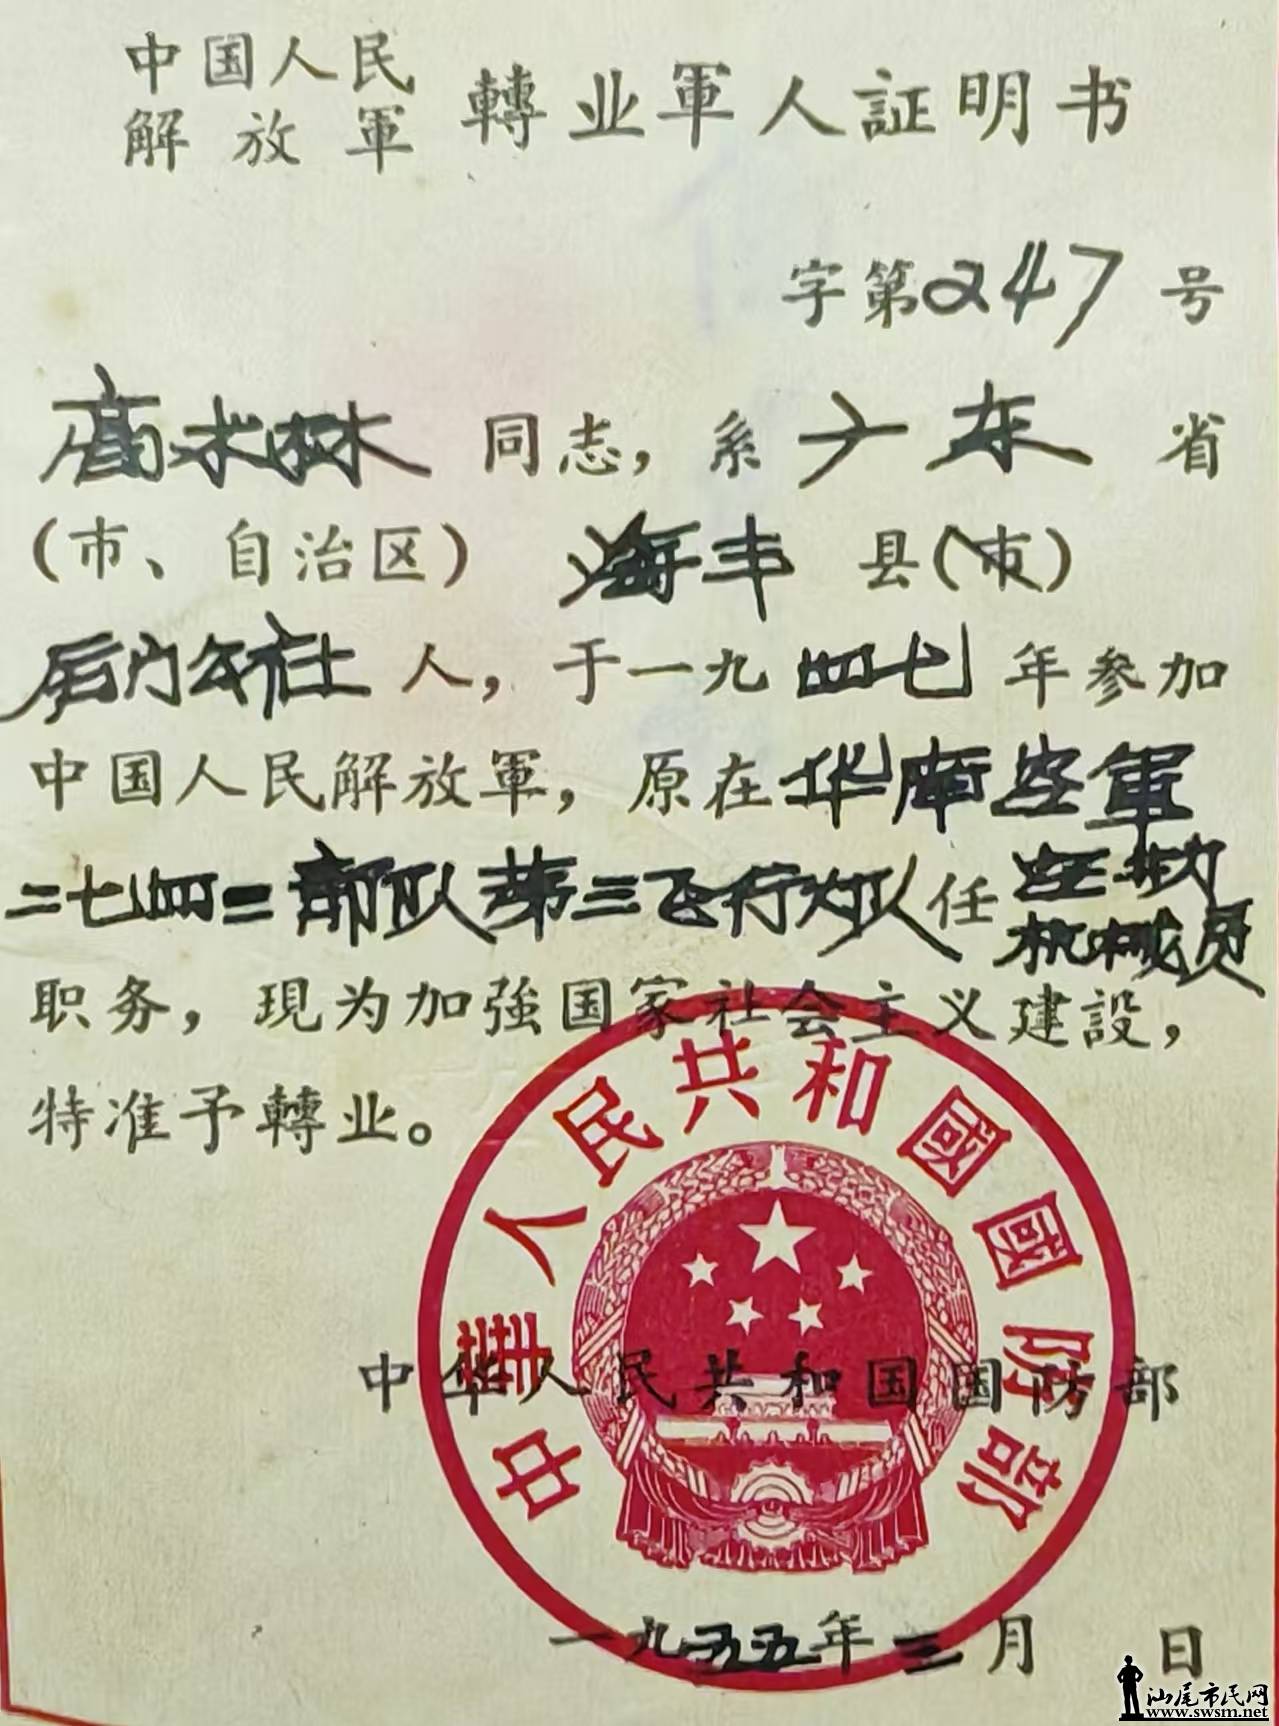 中国人民
解放軍
轉业軍人証明书
字第247号
高木林同志，系广东省
(市、自治区) 海丰县(市)
后门公社人，于一九四七年参加
中国人民解放軍，原在华南空軍
二七四二部队第三飞行大队任空勤
机械员
职务，現为加強国家社会主义建設，
特准予轉业。
中華人民共和國國防部
中华人民共和国国防部
一九五五年三月 日
汕尾市民网
www.swsm.net